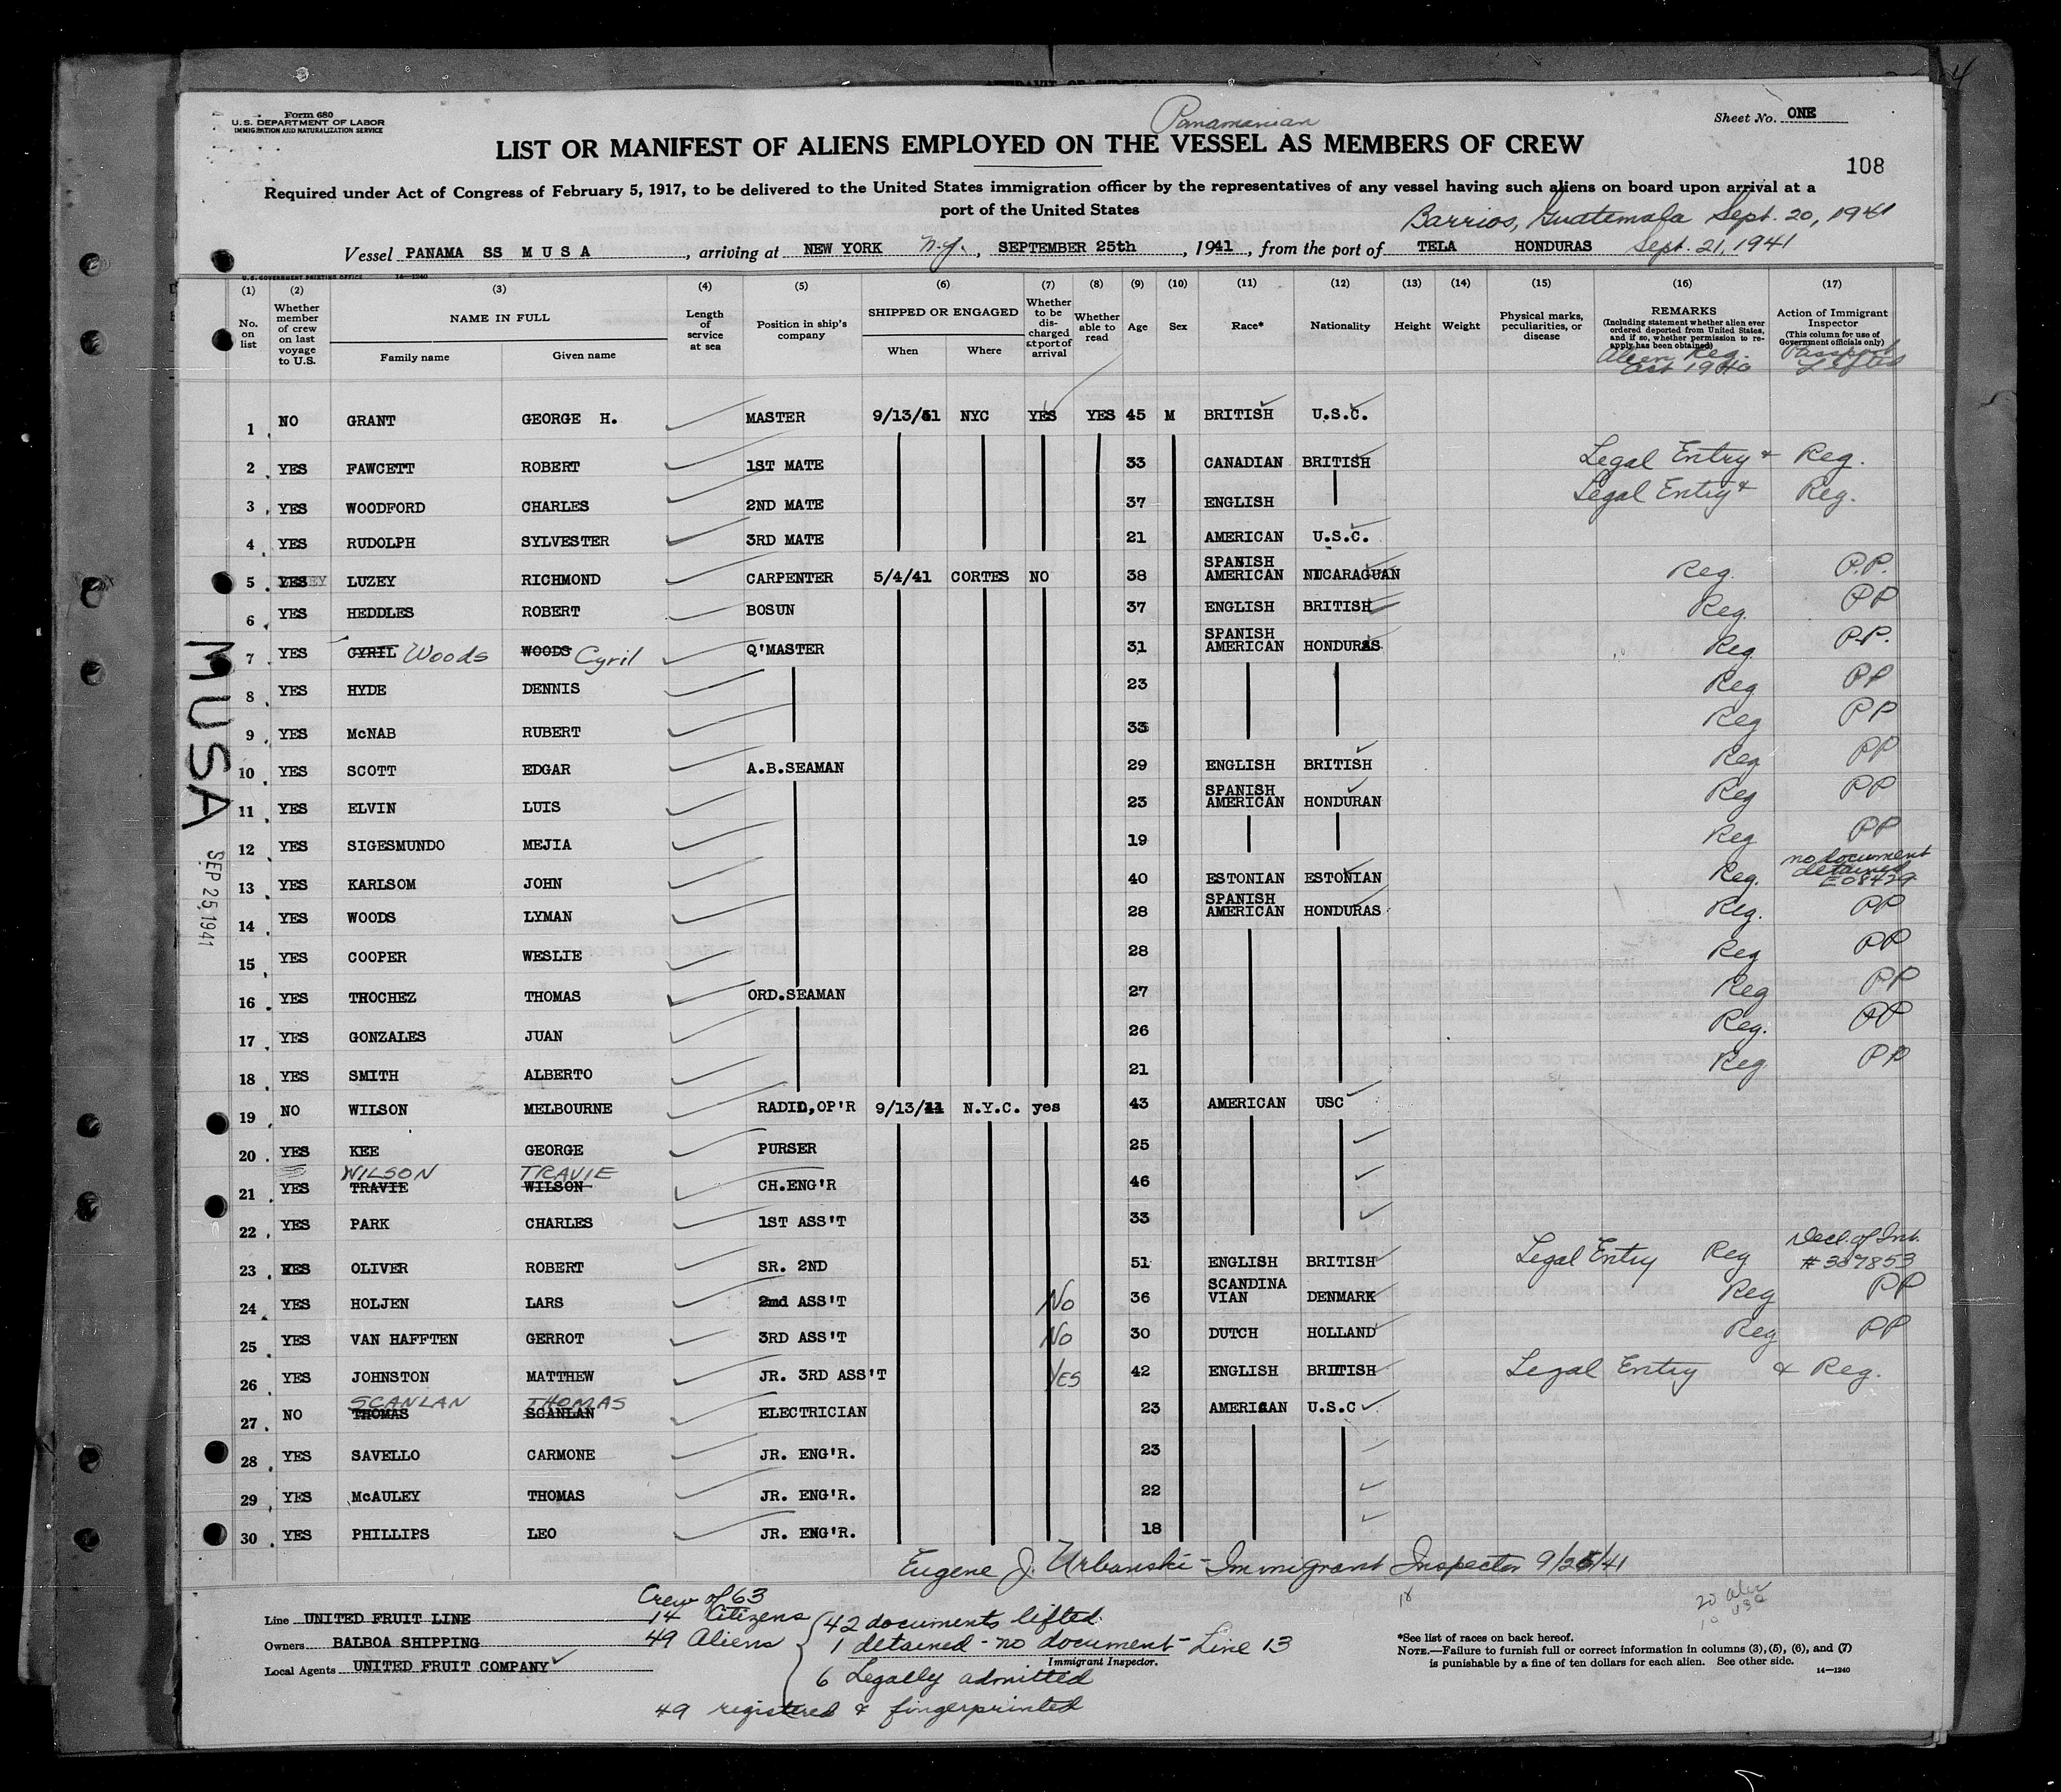 4
Form 680
U.S. DEPARTMENT OF LABOR
IMMIGRATION AND NATURALIZATION SERVICE
Panamanian
Sheet No. ONE
LIST OR MANIFEST OF ALIENS EMPLOYED ON THE VESSEL AS MEMBERS OF CREW
108
Required under Act of Congress of February 5, 1917, to be delivered to the United States immigration officer by the representatives of any vessel having such aliens on board upon arrival at a
port of the United States
Barrios, Guatemala Sept. 20, 1941
Vessel PANAMA SS MUSA, arriving at NEW YORK N.Y., SEPTEMBER 25th, 1941, from the port of TELA HONDURAS Sept. 21, 1941
U.S. GOVERNMENT PRINTING OFFICE 14—1240
(1) (2) (3) (4) (5) (6) (7) (8) (9) (10) (11) (12) (13) (14) (15) (16) (17)
No. on list
Whether member of crew on last voyage to U.S.
NAME IN FULL
Family name Given name
Length of service at sea
Position in ship's company
SHIPPED OR ENGAGED
When Where
Whether to be discharged at port of arrival
Whether able to read
Age
Sex
Race*
Nationality
Height
Weight
Physical marks, peculiarities, or disease
REMARKS
(Including statement whether alien ever ordered deported from United States, and if so, whether permission to reapply has been obtained)
Alien Reg.
Act 1940
Action of Immigrant Inspector
(This column for use of Government officials only)
Passport
Lifted
1 NO GRANT GEORGE H. MASTER 9/13/41 NYC YES YES 45 M BRITISH U.S.C.
2 YES FAWCETT ROBERT 1ST MATE 33 CANADIAN BRITISH Legal Entry + Reg.
3 YES WOODFORD CHARLES 2ND MATE 37 ENGLISH Legal Entry + Reg.
4 YES RUDOLPH SYLVESTER 3RD MATE 21 AMERICAN U.S.C.
5 YES LUZEY RICHMOND CARPENTER 5/4/41 CORTES NO 38 SPANISH AMERICAN NICARAGUAN Reg. P.P.
6 YES HEDDLES ROBERT BOSUN 37 ENGLISH BRITISH Reg. PP
7 YES CYRIL Woods WOODS Cyril Q'MASTER 31 SPANISH AMERICAN HONDURAS Reg. P.P.
8 YES HYDE DENNIS 23 Reg PP
9 YES McNAB RUBERT 33 Reg PP
10 YES SCOTT EDGAR A.B.SEAMAN 29 ENGLISH BRITISH Reg PP
11 YES ELVIN LUIS 23 SPANISH AMERICAN HONDURAN Reg PP
12 YES SIGESMUNDO MEJIA 19 Reg PP
13 YES KARLSOM JOHN 40 ESTONIAN ESTONIAN Reg. no document detained E08429
14 YES WOODS LYMAN 28 SPANISH AMERICAN HONDURAS Reg. PP
15 YES COOPER WESLIE 28 Reg PP
16 YES THOCHEZ THOMAS ORD.SEAMAN 27 Reg PP
17 YES GONZALES JUAN 26 Reg. PP
18 YES SMITH ALBERTO 21 Reg PP
19 NO WILSON MELBOURNE RADIO,OP'R 9/13/41 N.Y.C. yes 43 AMERICAN USC
20 YES KEE GEORGE PURSER 25
WILSON TRAVIE
21 YES TRAVIE WILSON CH.ENG'R 46
22 YES PARK CHARLES 1ST ASS'T 33
23 YES OLIVER ROBERT SR. 2ND 51 ENGLISH BRITISH Legal Entry Reg Decl. of Int. #307853
24 YES HOLJEN LARS 2nd ASS'T No 36 SCANDINA VIAN DENMARK Reg PP
25 YES VAN HAFFTEN GERROT 3RD ASS'T No 30 DUTCH HOLLAND Reg PP
26 YES JOHNSTON MATTHEW JR. 3RD ASS'T YES 42 ENGLISH BRITISH Legal Entry & Reg.
SCANLAN THOMAS
27 NO THOMAS SCANLAN ELECTRICIAN 23 AMERICAN U.S.C
28 YES SAVELLO CARMONE JR. ENG'R. 23
29 YES McAULEY THOMAS JR. ENG'R. 22
30 YES PHILLIPS LEO JR. ENG'R. 18
MUSA
SEP 25 1941
Eugene J. Urbanski - Immigrant Inspector 9/25/41
Crew of 63
18
20 alien
10 USC
Line UNITED FRUIT LINE
14 Citizens
42 documents lifted
Owners BALBOA SHIPPING
49 Aliens
1 detained - no document - Line 13
Immigrant Inspector.
Local Agents UNITED FRUIT COMPANY
6 Legally admitted
49 registered & fingerprinted
*See list of races on back hereof.
NOTE.—Failure to furnish full or correct information in columns (3), (5), (6), and (7)
is punishable by a fine of ten dollars for each alien. See other side.
14—1240